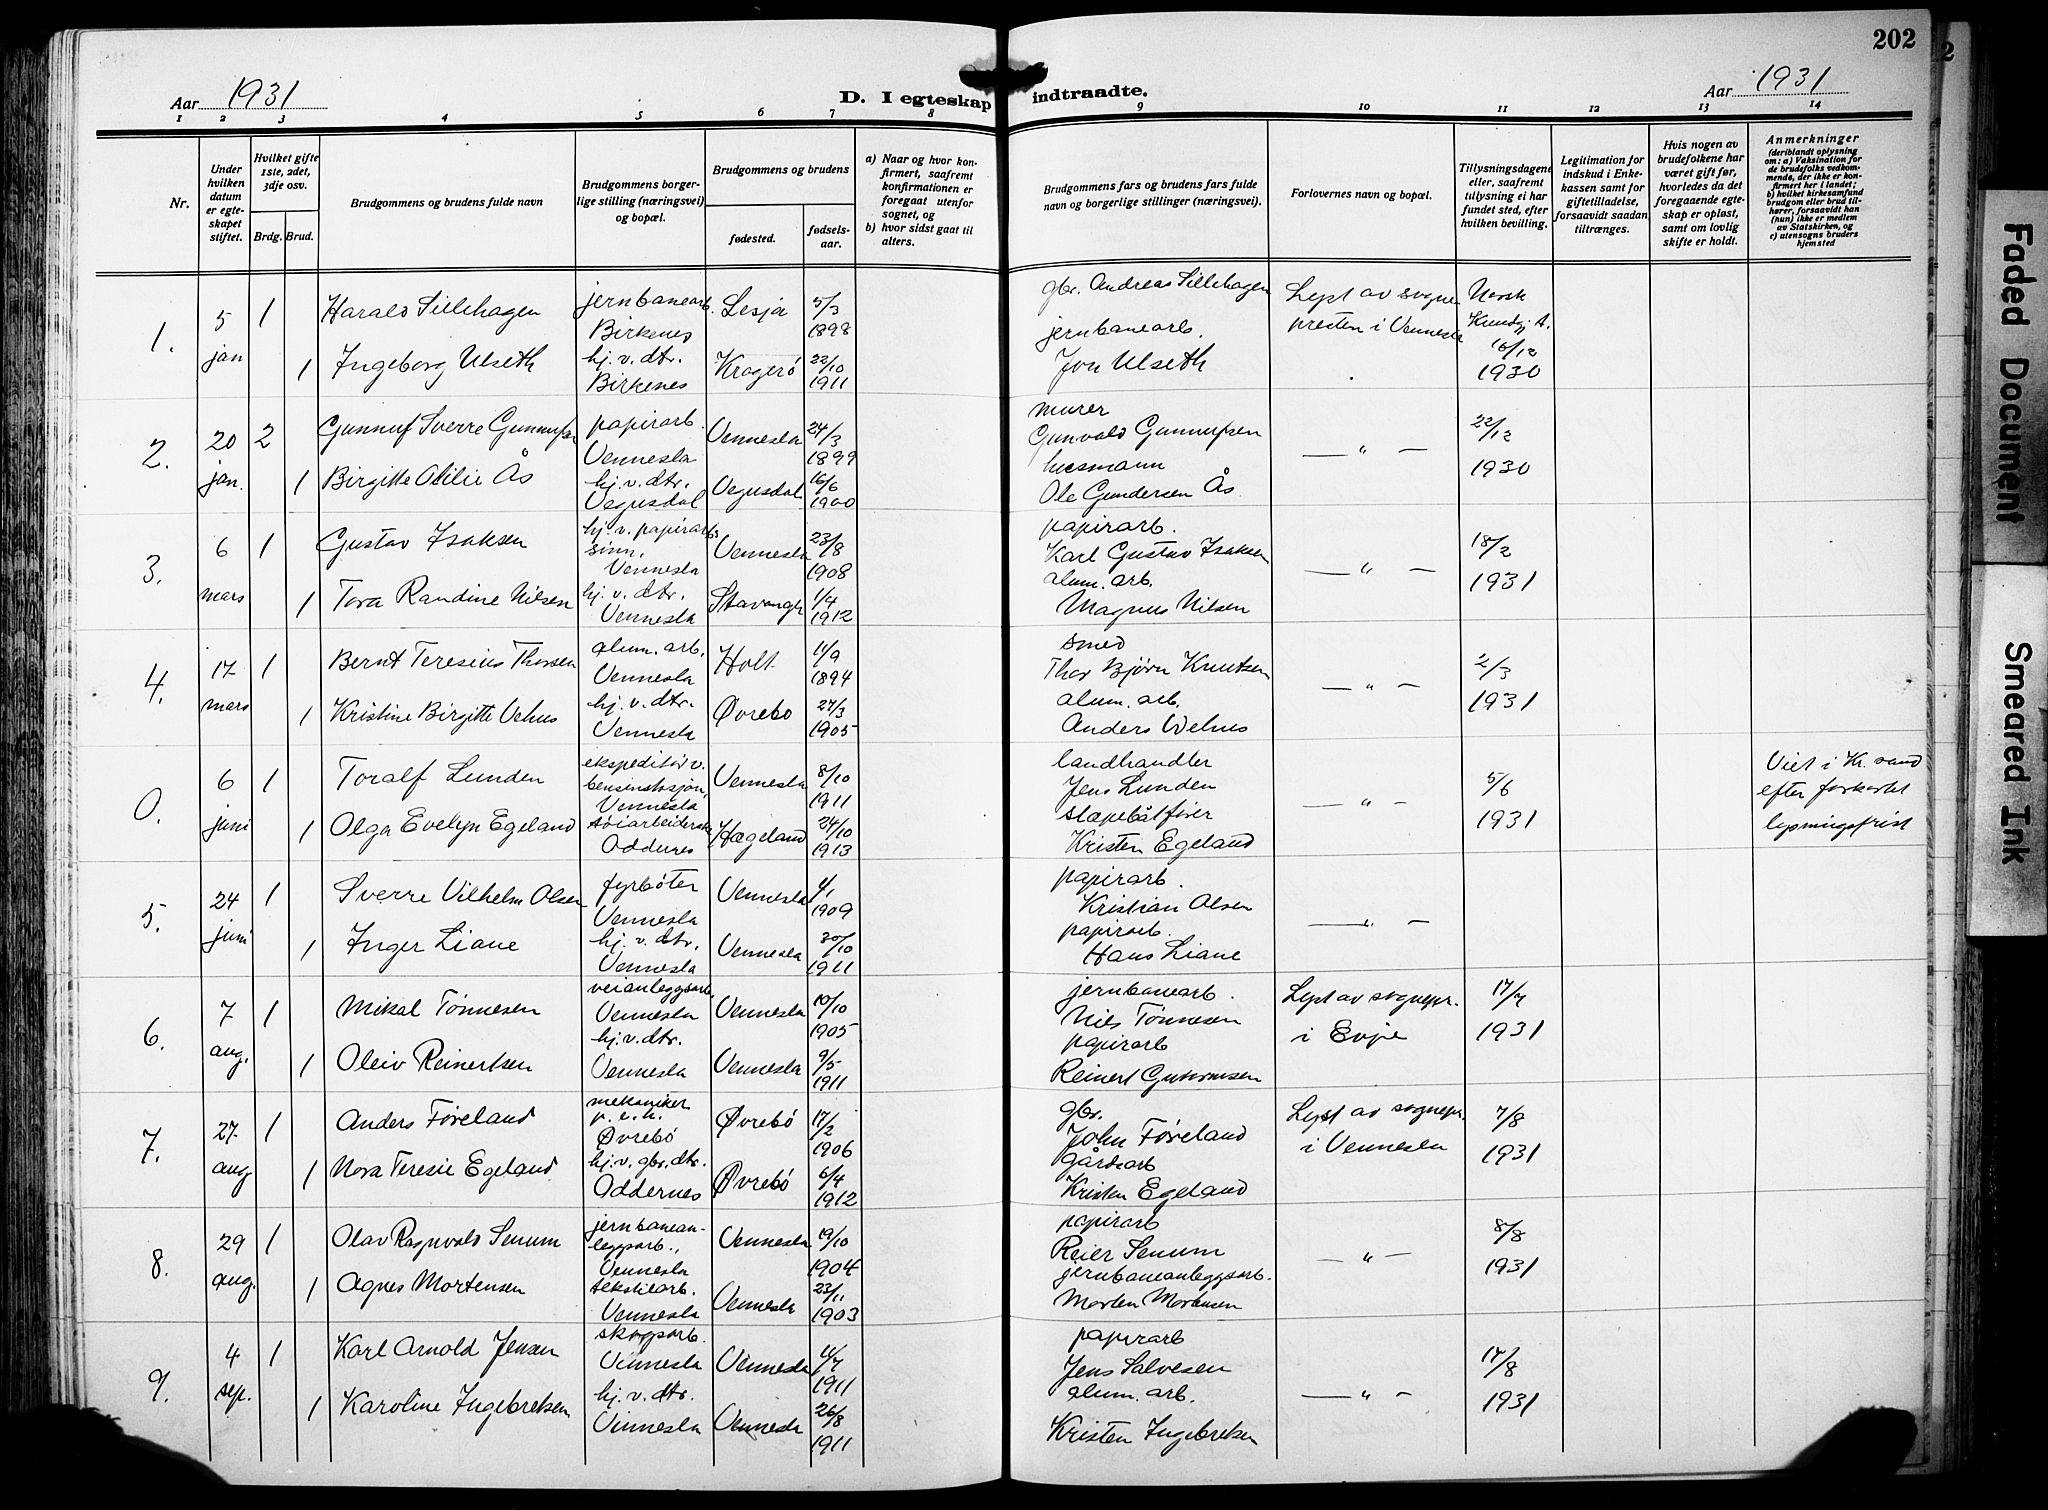 202
Aar 1931
D. I egteskap indtraadte.
Aar 1931
1 2 3 4 5 6 7 8 9 10 11 12 13 14
Nr.
Under hvilken datum er egteskapet stiftet.
Hvilket gifte 1ste, 2det, 3dje osv.
Brdg. Brud.
Brudgommens og brudens fulde navn
Brudgommens borgerlige stilling (næringsvei) og bopæl.
Brudgommens og brudens
fødested.
fødselsaar.
a) Naar og hvor konfirmert, saafremt konfirmationen er foregaat utenfor sognet, og
b) hvor sidst gaat til alters.
Brudgommens fars og brudens fars fulde navn og borgerlige stillinger (næringsvei).
Forlovernes navn og bopæl.
Tillysningsdagene eller, saafremt tillysning ei har fundet sted, efter hvilken bevilling.
Legitimation for indskud i Enkekassen samt for giftetilladelse, forsaavidt saadan tiltrænges.
Hvis nogen av brudefolkene har været gift før, hvorledes da det foregaaende egteskap er opløst, samt om lovlig skifte er holdt.
Anmerkninger
(deriblandt oplysning om: a) Vaksination for de brudefolks vedkommende, der ikke er konfirmert her i landet; b) hvilket kirkesamfund brudgom eller brud tilhører, forsaavidt han (hun) ikke er medlem av Statskirken, og c) utensogns bruders hjemsted
1. 5 jan 1 Harald Sillehagen jernbanearb. Birkenes Lesja 5/3 1898 gbr. Andreas Sillehagen Lyst av sognepresten i Vennesla Norsk Kundgj. A. 16/12 1930
1 Ingeborg Ulseth hj. v. dtr. Birkenes Kragerö 22/10 1911 jernbanearb. Jon Ulseth
2. 20 jan. 2 Gunnuf Sverre Gunnufsen papirarb. Vennesla Vennesla 24/3 1899 murer Gunvald Gunnufsen — " — 22/12 1930
1 Birgitte Otilie Ås hj. v. dtr. Vegusdal Vegusdal 16/6 1900 husmann Ole Gundersen Ås.
3. 6 mars 1 Gustav Isaksen hj. v. papirarb. sinn. Vennesla Vennesla 23/8 1908 papirarb. Karl Gustav Isaksen — " — 18/2 1931
1 Tora Randine Nilsen hj. v. dtr. Vennesla Stavanger 1/4 1912 alum. arb. Magnus Nilsen
4. 17 mars 1 Bernt Teresius Thorsen alum. arb. Vennesla Holt 11/9 1894 smed Thor Bjørn Knutsen — " — 2/3 1931
1 Kristine Birgitte Vehus hj. v. dtr. Vennesla Øvrebo 27/3 1905 alum. arb. Anders Wehus
0. 6 juni 1 Toralf Lunden ekspeditør v. bensinstasjon, Vennesla Vennesla 8/10 1911 landhandler Jens Lunden — " — 5/6 1931 Viet i Kr. sand efter forkortet lysningsfrist
1 Olga Evelyn Egeland tøiarbeiderske Oddernes Hægeland 24/10 1913 slæpebåtfører Kristen Egeland
5. 24 juni 1 Sverre Vilhelm Olsen fyrbøter Vennesla Vennesla 1909 papirarb. Kristian Olsen — " —
1 Inger Liane hj. v. dtr. Vennesla Vennesla 30/10 1911 papirarb. Hans Liane
6. 7 aug. 1 Mikal Tønnesen veianleggsarb. Vennesla Vennesla 10/10 1905 jernbanearb. Nils Tønnesen Lyst av sognepr. i Evje 17/7 1931
1 Oleiv Reinertsen hj. v. dtr. Vennesla Vennesla 9/5 1911 papirarb Reinert
7. 27 aug 1 Anders Føreland mekaniker Øvrebö Øvrebö 17/2 1906 gbr. John Føreland Lyst av sognepr. i Vennesla 7/8 1931
1 Nora Teresie Egeland hj. v. gbr. dtr. Oddernes Øvrebö 6/4 1912 gårdsarb Kristen Egeland
8. 29 aug. 1 Olav Ragnvald Senum jernbaneanleggsarb., Vennesla Vennesla 19/10 1904 papirarb Reier Senum — " — 8/8 1931
1 Agnes Mortensen tekstilarb. Vennesla Vennesla 23/11 1903 jernbaneanleggsarb. Morten Mortensen
9. 4 sep. 1 Karl Arnold Jensen skogsarb. Vennesla Vennesla 11/7 1911 papirarb Jens Salvesen — " — 17/8 1931
1 Karoline Ingebretsen hj. v. dtr. Vennesla Vennesla 26/8 1911 alum. arb. Kristen Ingebretsen
Faded Document
Smeared Ink